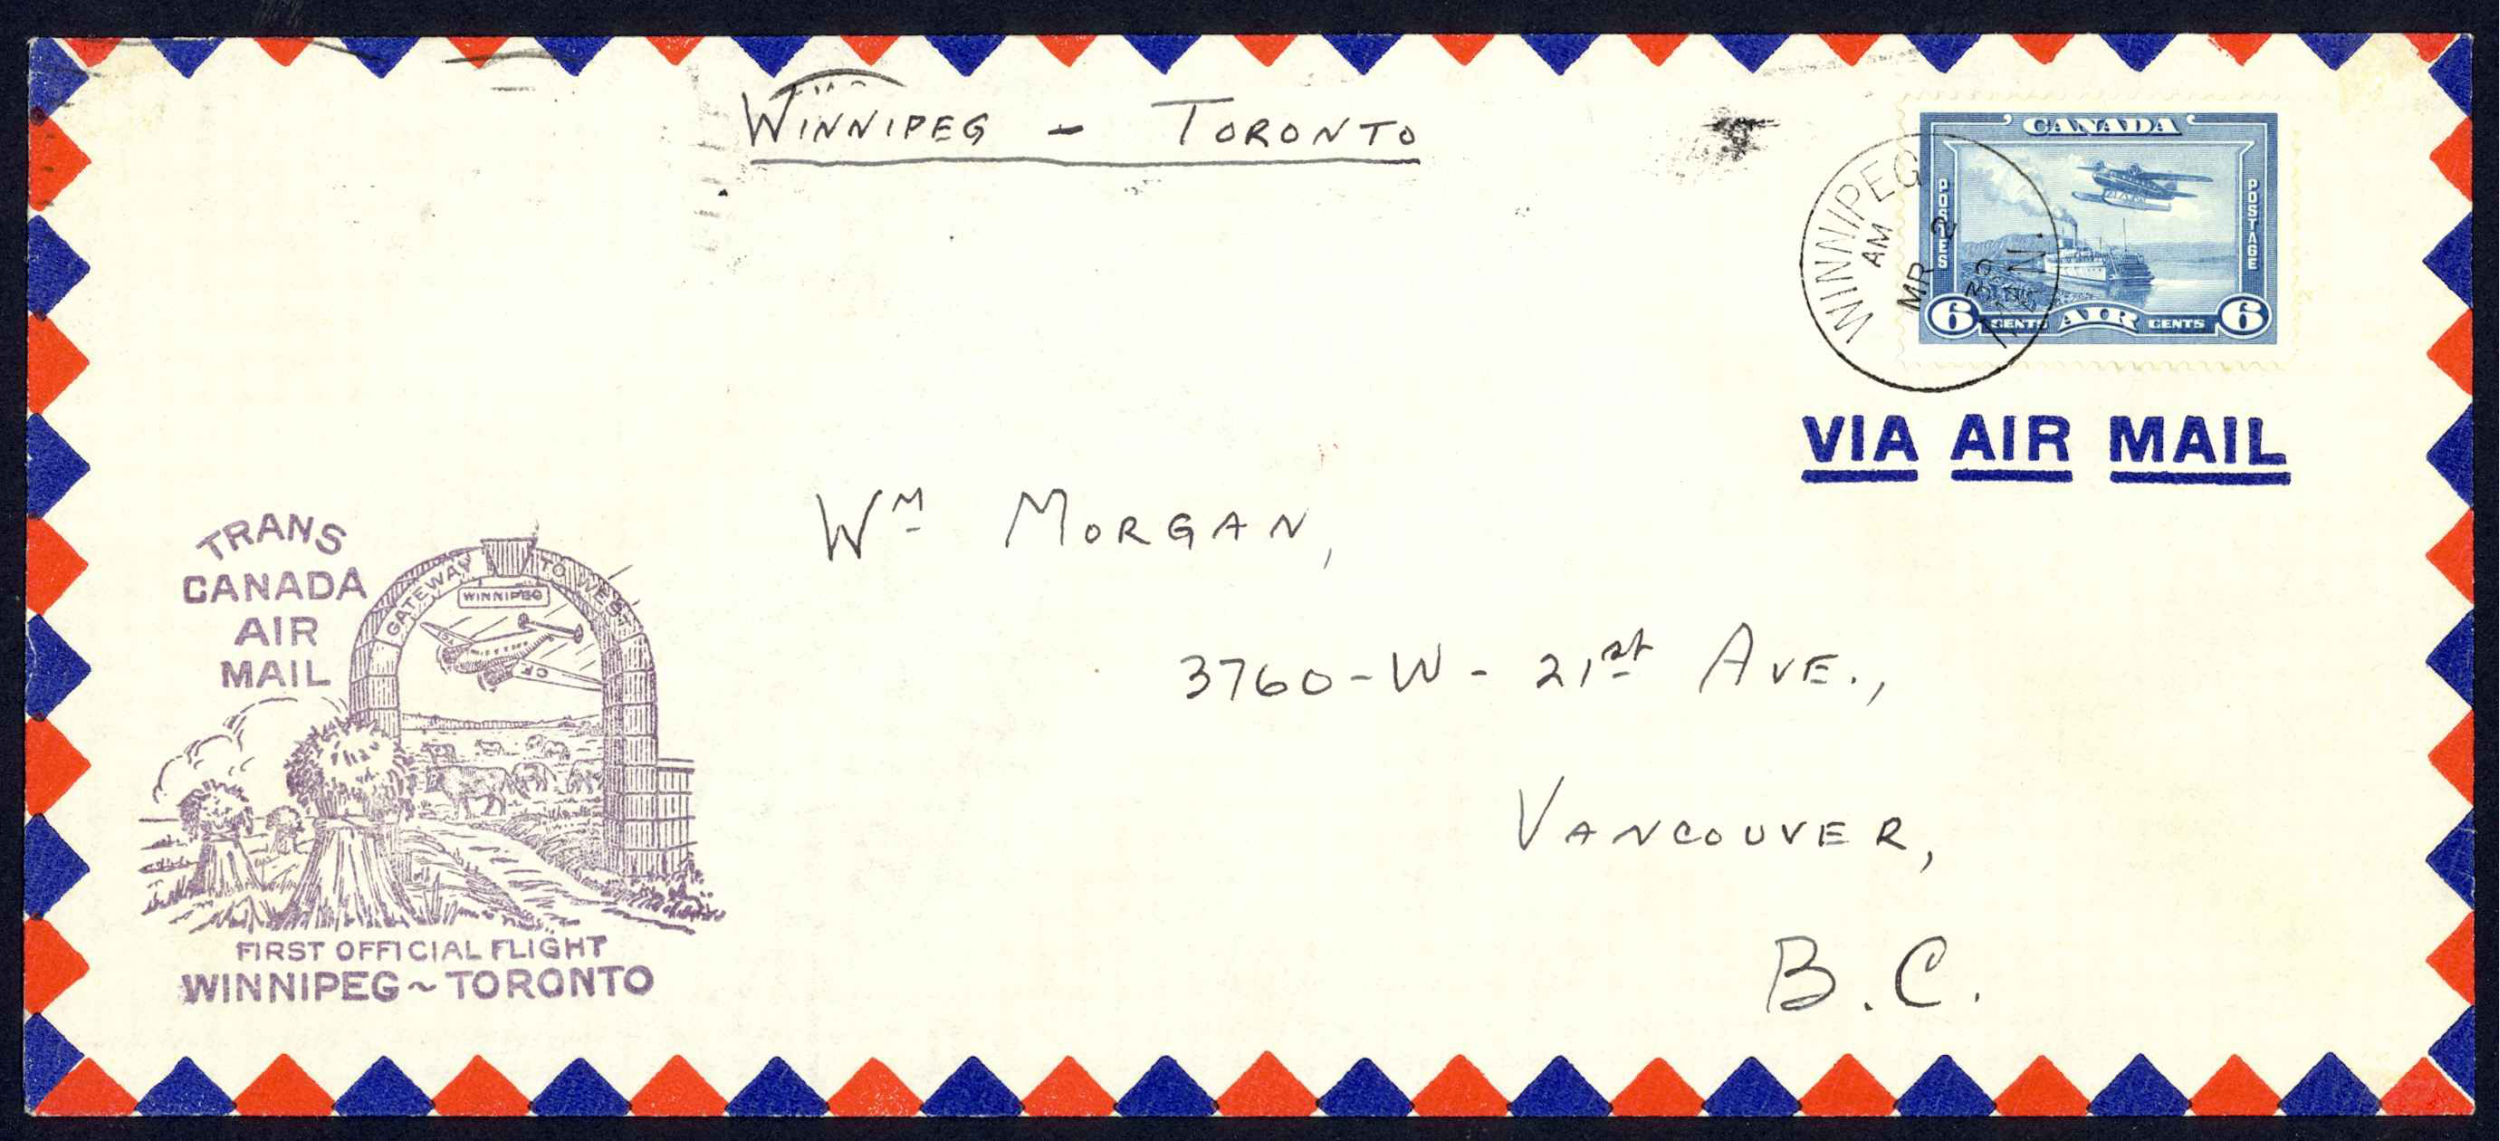 WINNIPEG - TORONTO
CANADA
POSTES
POSTAGE
6 CENTS AIR CENTS 6
WINNIPEG MAN.
AM
MR 2
39
VIA AIR MAIL
WM MORGAN,
3760-W-21st AVE.,
VANCOUVER,
B.C.
TRANS
CANADA
AIR
MAIL
GATEWAY TO WEST
WINNIPEG
CF
FIRST OFFICIAL FLIGHT
WINNIPEG ~ TORONTO